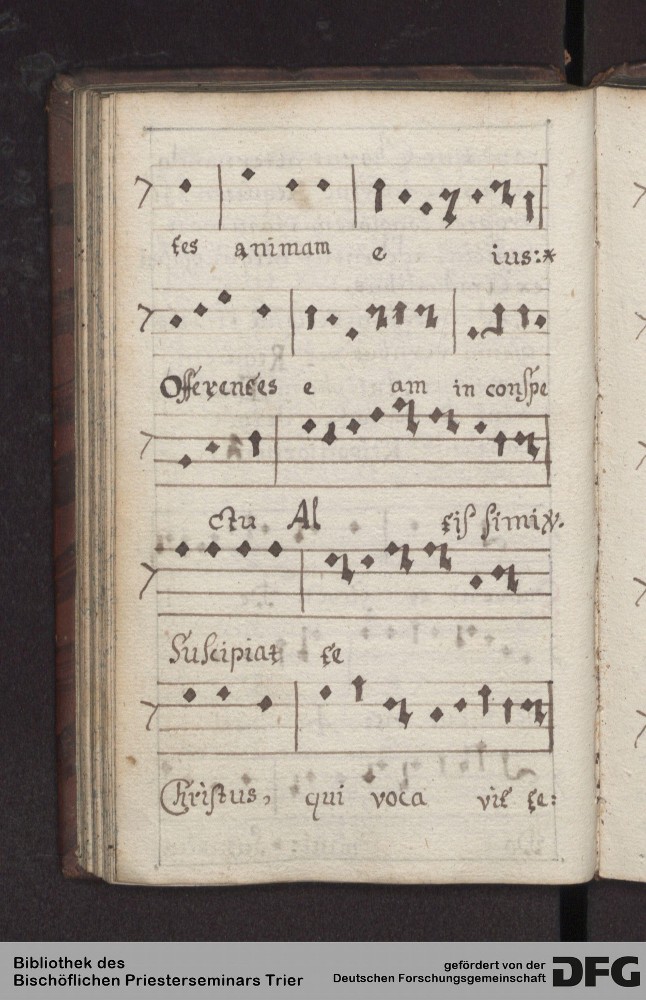 tes animam e ius:*
Offerentes e am in conspe
ctu Al tis simi V.
Suscipiat te
Christus, qui voca vit te:
Bibliothek des
Bischöflichen Priesterseminars Trier
gefördert von der
Deutschen Forschungsgemeinschaft
DFG